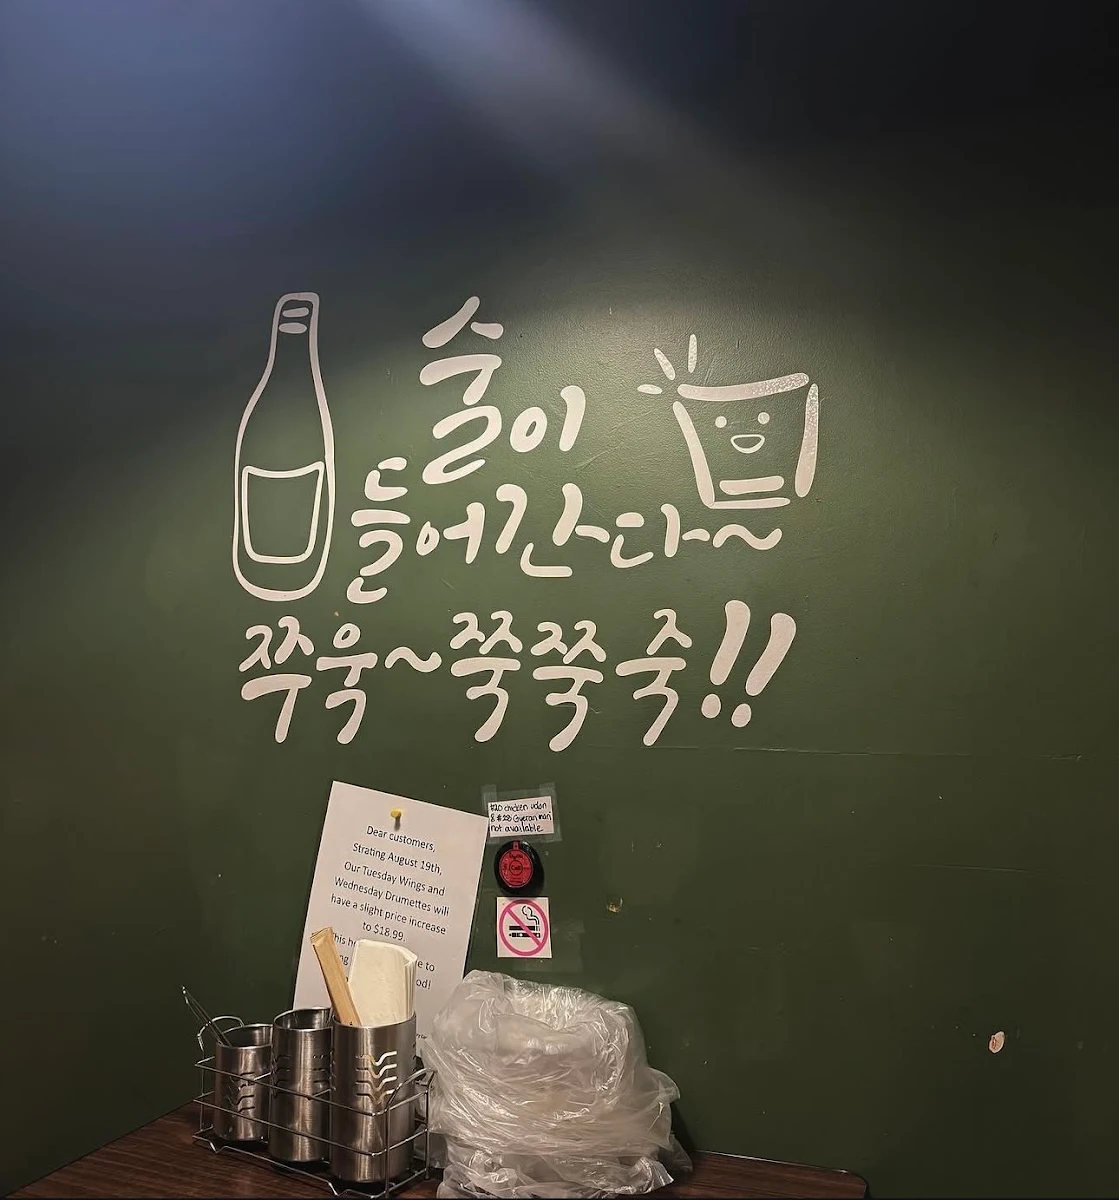 술이
들어간다~
쭈욱~쭉쭉 죽!!
Dear customers,
Strating August 19th,
Our Tuesday Wings and
Wednesday Drumettes will
have a slight price increase
to $18.99.
to
#20 chicken udon
& #28 Gyeran mari
not available